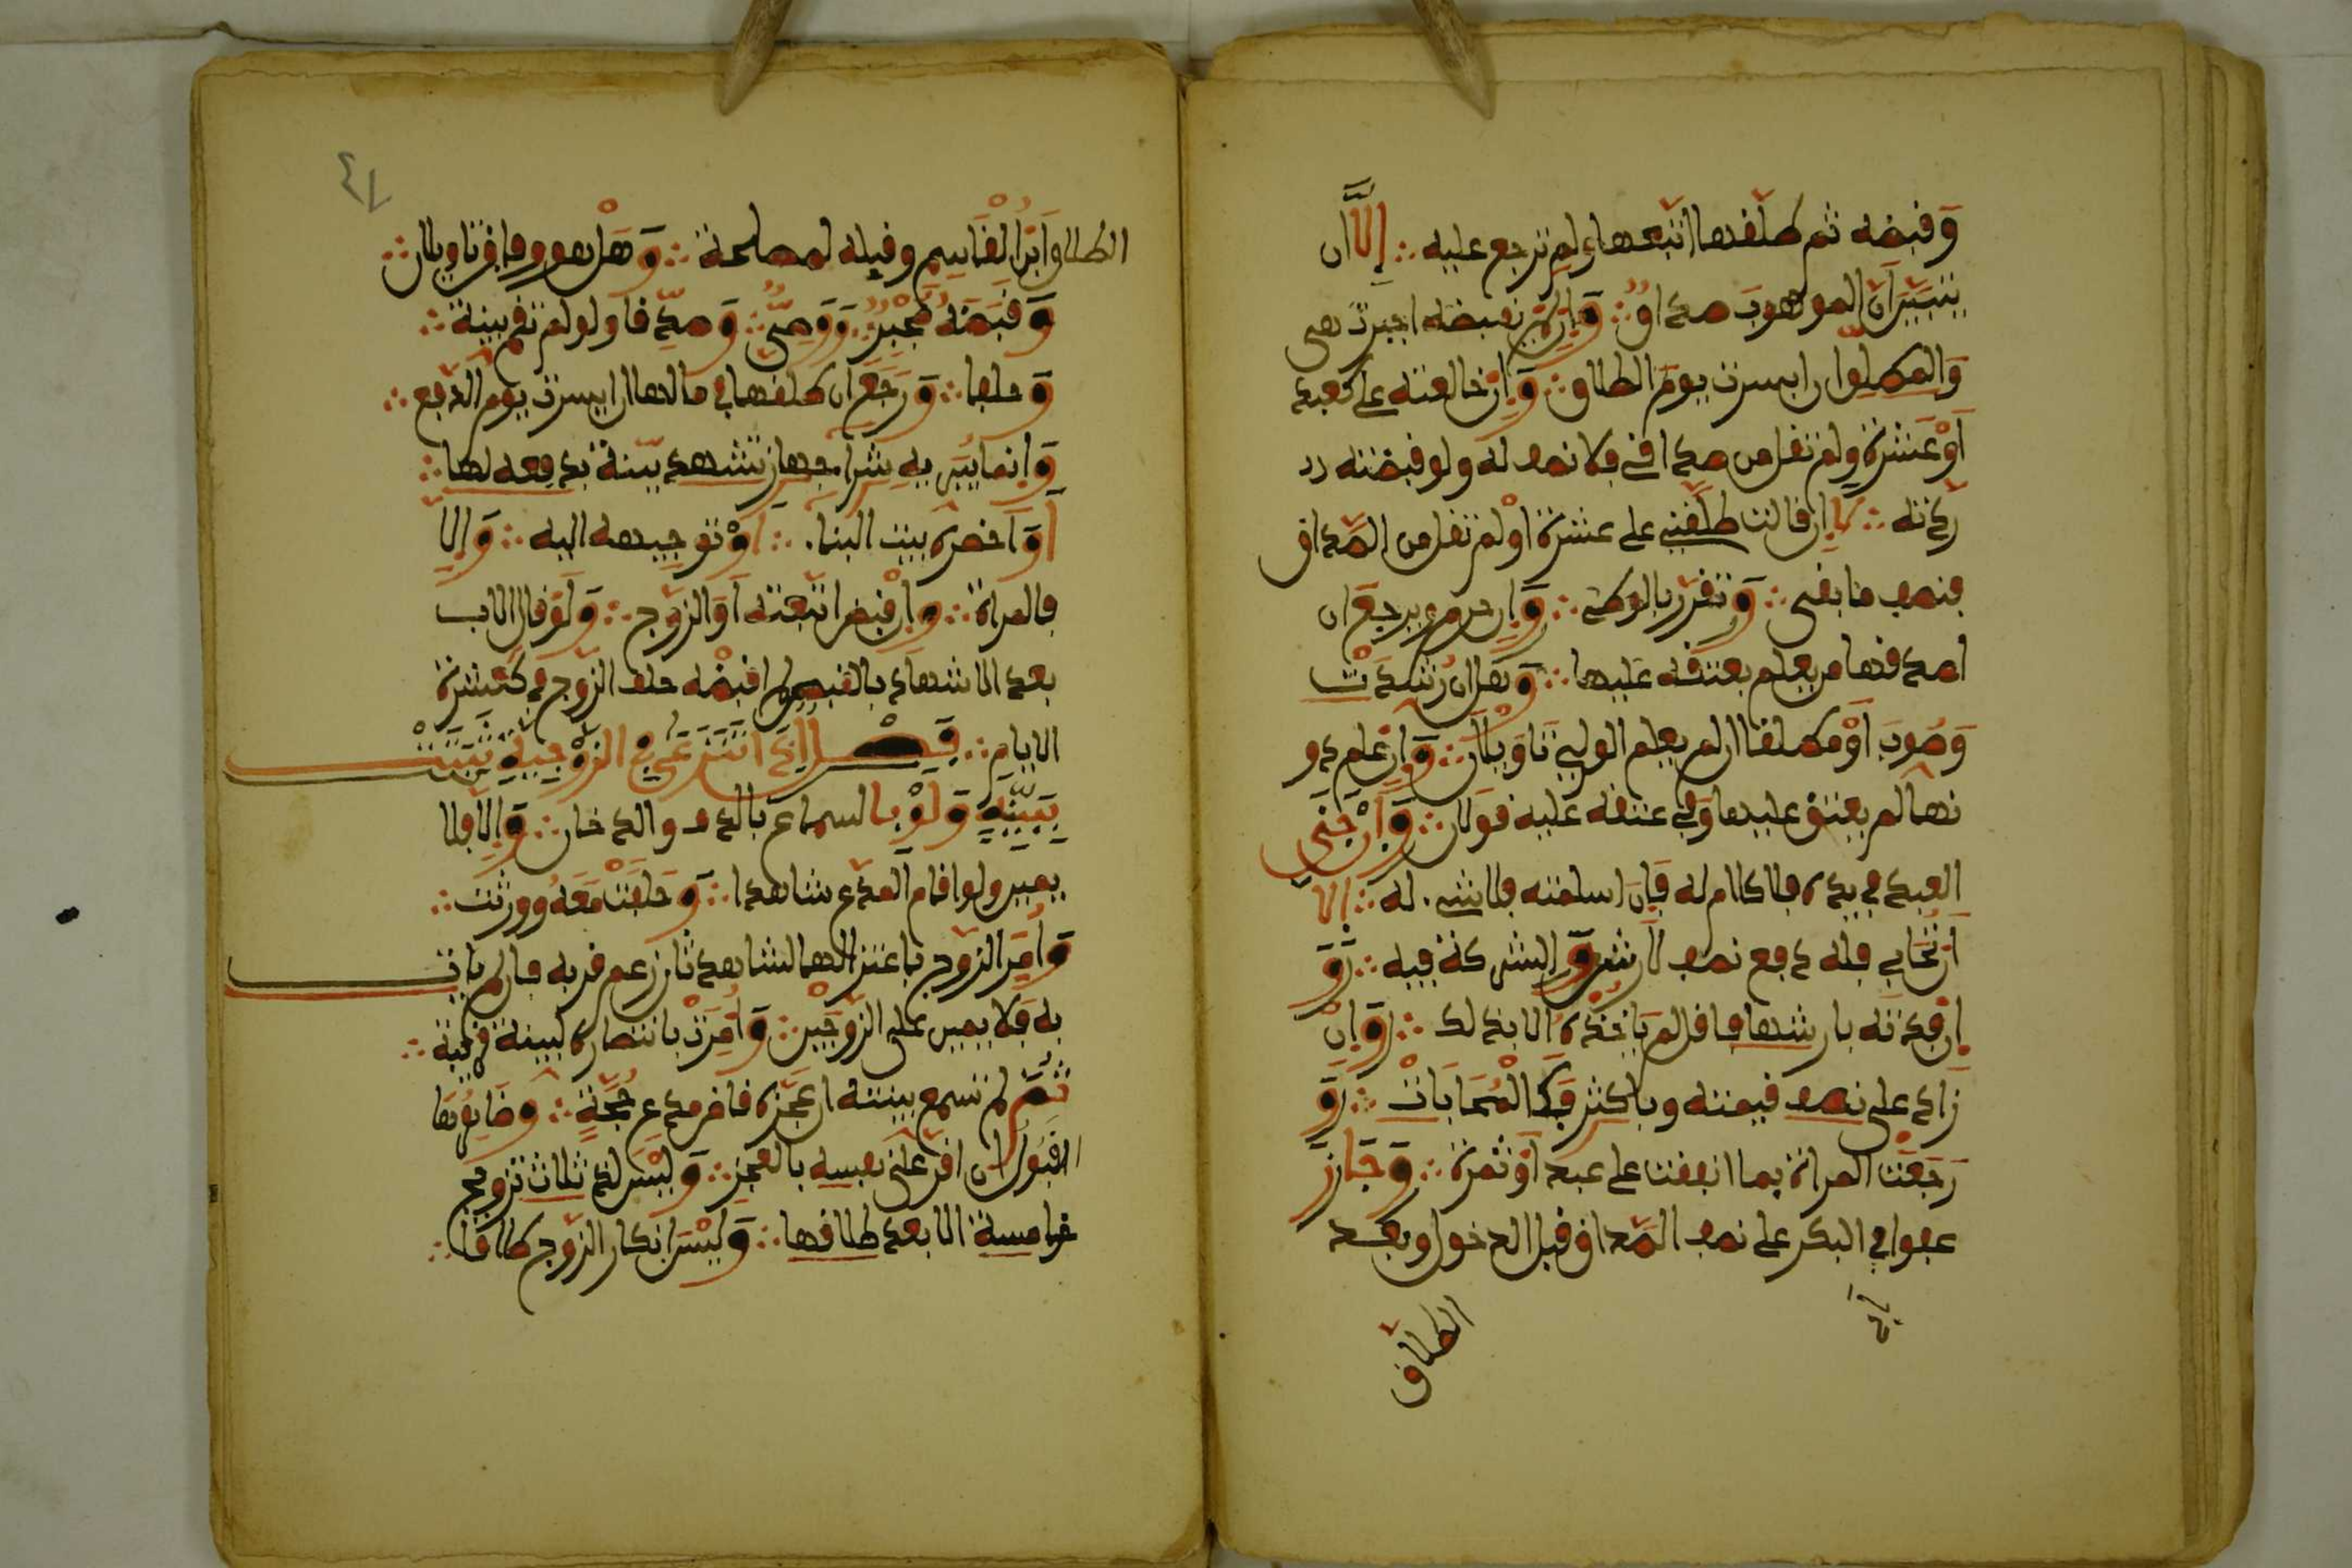 وقبضه ثم طلقها اتبعها ولم ترجع عليه ∴ إلا ان
يتبين ان الموهوب صداق ∴ وان لم يقبضه اجبرت هي
والمطلق ان ايسرت يوم الطلاق ∴ وان خالعته على كعبد
او عشرة ولم تقل من صداقي فلا نصف له ولو قبضته رد
ردته ∴ لا ان قالت طلقني على عشرة او لم تقل من الصداق
فنصف ما بقي ∴ وتقرر بالوطء ∴ وان حرم ويرجع ان
اصدقها من يعلم بعتقه عليها ∴ وهل ان رشدت
وصوب او مطلقا ان لم يعلم الولي تاويلان ∴ وان علم دو
نها لم يعتق عليها وفي عتقه عليه قولان ∴ وان جنى
العبد في يده فلا كلام له فان اسلمته فلا شيء له ∴ الا
ان تحابي فله دفع نصف الارش والشركة فيه ∴ و
ان فدته بارشها فاقل لم ياخذه الا بذلك ∴ وان
زاد على نصف قيمته وباكثر فكالمحابات ∴ و
رجعت المراة بما انفقت على عبد او ثمرة ∴ وجاز
عفو ابي البكر على نصف الصداق قبل الدخول وبعد
الطلاق
الطلاق ابن القاسم وقبله لمصلحة ∴ وهل هو وفاق تاويلان ∴
وقبضه مجبر ∴ ووصي ∴ وصدقا ولو لم تقم بينة ∴
وحلفا ∴ ورجع ان طلقها في مالها ان ايسرت يوم الدفع ∴
وانما يبريه شراء جهاز تشهد بينة بدفعه لها ∴
او احضره بيت البناء ∴ او توجيهه اليه ∴ والا
فالمراة ∴ وان قبض اتبعته او الزوج ∴ ولو قال الاب
بعد الاشهاد بالقبض لم اقبضه حلف الزوج في كعشرة
الايام ∴ فصل اذا تنازعا في الزوجية ثبتت
ببينة ولو بالسماع بالدف والدخان ∴ والا فلا
يمين ولو اقام المدعي شاهدا ∴ وحلفت معه وورثت ∴
وامر الزوج باعتزالها لشاهد ثان زعم قربه فان لم يات
به فلا يمين على الزوجين ∴ وامرت بانتظاره لبينة قريبة ∴
ثم لم تسمع بينته ان عجزه قاض مدعي حجة ∴ وظاهرها
القبول ان اقر على نفسه بالعجز ∴ وليس لذي ثلاث تزويج
خامسة الا بعد طلاقها ∴ وليس انكار الزوج طلاقا ∴